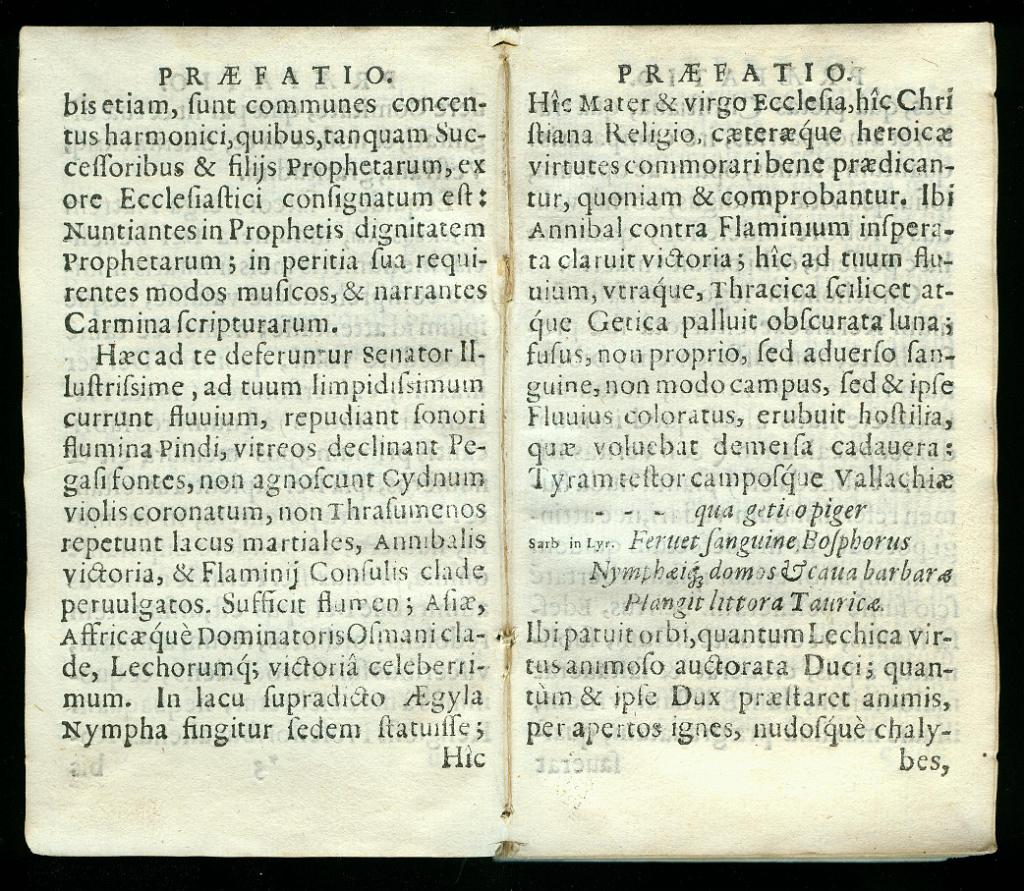 PRÆFATIO.
bis etiam, ſunt communes concen-
tus harmonici, quibus, tanquam Suc-
ceſſoribus & filijs Prophetarum, ex
ore Eccleſiaſtici conſignatum eſt:
Nuntiantes in Prophetis dignitatem
Prophetarum; in peritia ſua requi-
rentes modos muſicos, & narrantes
Carmina ſcripturarum.
Hæc ad te deferuntur Senator Il-
luſtriſſime, ad tuum limpidiſſimum
currunt fluuium, repudiant ſonori
flumina Pindi, vitreos declinant Pe-
gaſi fontes, non agnoſcunt Cydnum
violis coronatum, non Thraſumenos
repetunt lacus martiales, Annibalis
victoria, & Flaminij Conſulis clade
peruulgatos. Sufficit flumen; Aſiæ,
Affricæquè Dominatoris Oſmani cla-
de, Lechorumq́; victoriâ celeberri-
mum. In lacu ſupradicto Ægyla
Nympha fingitur ſedem ſtatuiſſe;
Hîc
PRÆFATIO.
Hîc Mater & virgo Eccleſia, hîc Chri
ſtiana Religio, cæteræq́ue heroicæ
virtutes commorari bene prædican-
tur, quoniam & comprobantur. Ibi
Annibal contra Flaminium inſpera-
ta claruit victoria; hîc ad tuum flu-
uium, vtraq́ue, Thracica ſcilicet at-
q́ue Getica palluit obſcurata luna;
fuſus, non proprio, ſed aduerſo ſan-
guine, non modo campus, ſed & ipſe
Fluuius coloratus, erubuit hoſtilia,
quæ voluebat demerſa cadauera:
Tyram teſtor campoſq́ue Vallachiæ
- - - qua getico piger
Sarb in Lyr. Feruet ſanguine Boſphorus
Nymphæiq́; domos & caua barbaræ
Plangit littora Tauricæ.
Ibi patuit orbi, quantum Lechica vir-
tus animoſo auctorata Duci; quan-
tùm & ipſe Dux præſtaret animis,
per apertos ignes, nudoſq́uè chaly-
bes,